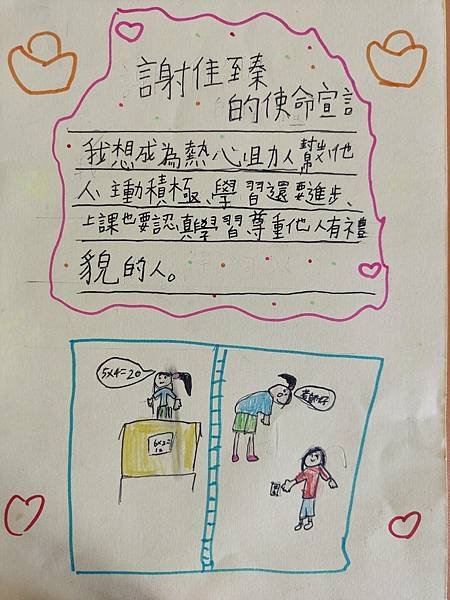 謝佳臻
的使命宣言
我想成為熱心助人幫他
人、主動積極、學習還要進步、
上課也要認真學習尊重他人有禮
貌的人。
5x4=20
老師好